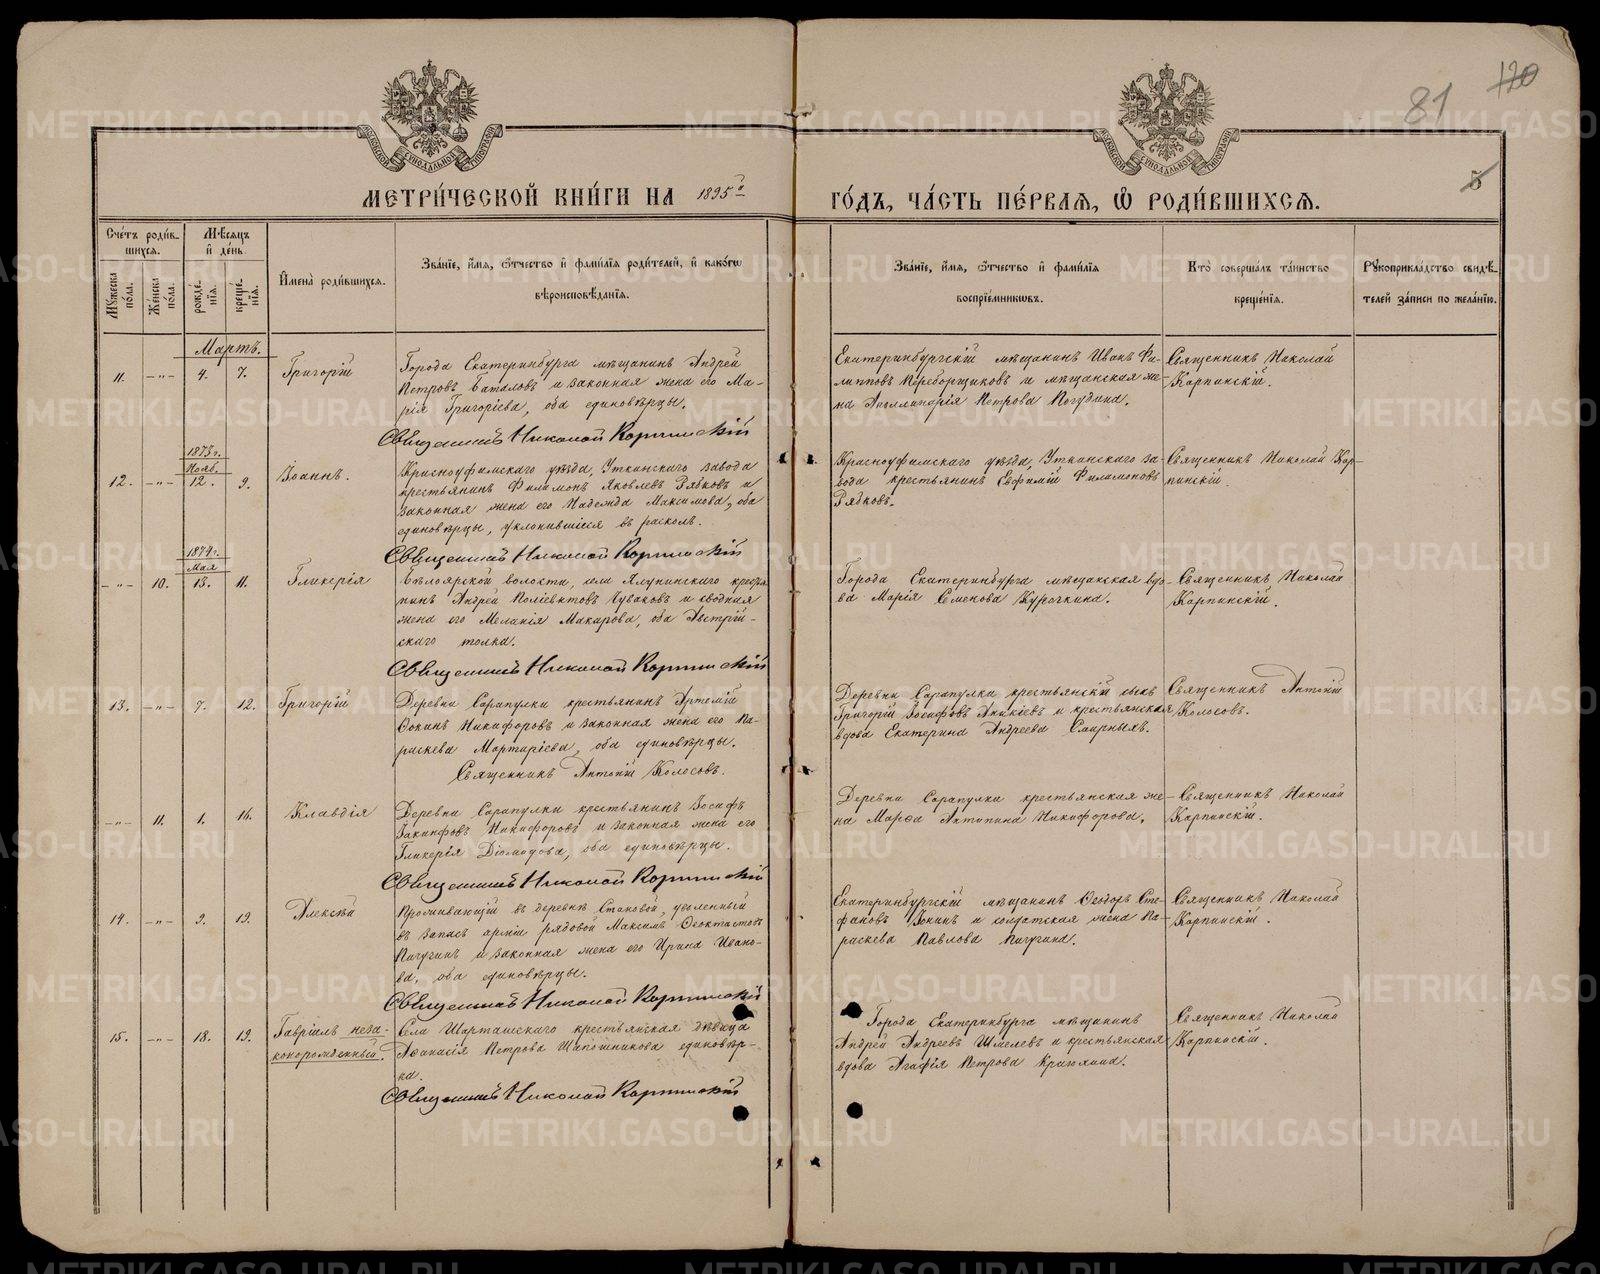 81
120
5
МОСКОВСКОЙ СѴНОДАЛЬНОЙ ТИПОГРАФІИ
МОСКОВСКОЙ СѴНОДАЛЬНОЙ ТИПОГРАФІИ
МЕТРИ́ЧЕСКОЙ КНИ́ГИ НА 1895го ГО́ДЪ, ЧА́СТЬ ПЕ́РВАЯ, Ѡ҆ РОДИ́ВШИХСЯ.
Сче́тъ роди́вшихся.
Мꙋ́жеска по́ла.
Же́нска по́ла.
Мѣ́сяцъ и҆ де́нь.
рожде́нїя.
креще́нїя.
И҆мена̀ роди́вшихся.
Зва́нїе, и҆́мя, ѻ҆́тчество и҆ фами́лїя роди́телей, и҆ како́гѡ
вѣроисповѣ́данїя.
Зва́нїе, и҆́мя, ѻ҆́тчество и҆ фами́лїя
воспрїе́мникѡвъ.
Кто̀ соверша́лъ та́инство
креще́нїя.
Рꙋкоприкла́дство свидѣ́телей за́писи по жела́нїю.
Мартъ.
11. —"— 4. 7. Григорій
Города Екатеринбурга мѣщанинъ Андрей
Петровъ Баталовъ и законная жена его Ма-
рія Григоріева, оба единовѣрцы.
Священникъ Николай Карпинскій
Екатеринбургскій мѣщанинъ Иванъ Фи-
липповъ Переборщиковъ и мѣщанская же-
на Аполлинарія Петрова Погудина.
Священникъ Николай
Карпинскій.
1873 г.
Нояб.
12. —"— 12. 9. Іоаннъ.
Красноуфимскаго уѣзда, Уткинскаго завода
крестьянинъ Филимонъ Яковлевъ Рябковъ и
законная жена его Надежда Максимова, оба
единовѣрцы, уклонившіеся въ расколъ.
Священникъ Николай Карпинскій
Красноуфимскаго уѣзда, Уткинскаго за-
вода крестьянинъ Евфимій Филимоновъ
Рябковъ.
Священникъ Николай Кар-
пинскій.
1874 г.
Мая
—"— 10. 13. 11. Гликерія
Бѣлоярской волости, села
Андрей Поліевктовъ Чуваковъ и сводная
жена его Меланія Макарова, оба Австрій-
скаго толка.
Священникъ Николай Карпинскій
Города Екатеринбурга мѣщанская вдо-
ва Марія Семенова Курочкина.
Священникъ Николай
Карпинскій.
13. —"— 7. 12. Григорій
Деревни Сарапулки крестьянинъ Артемій
Никифоровъ и законная жена его Па-
раскева Мартиріева, оба единовѣрцы.
Священникъ Антоній Колосовъ.
Деревни Сарапулки крестьянскій сынъ
Григорій Іосифовъ Аникіевъ и крестьянская
вдова Екатерина Андреева Смирныхъ.
Священникъ Антоній
Колосовъ.
—"— 11. 1. 16. Клавдія
Деревни Сарапулки крестьянинъ Іосифъ
Іакинфовъ Никифоровъ и законная жена его
Гликерія Діомидова, оба единовѣрцы.
Священникъ Николай Карпинскій
Деревни Сарапулки крестьянская же-
на Марѳа Антипина Никифорова.
Священникъ Николай
Карпинскій.
14. —"— 9. 19. Алексѣй
Проживающій въ деревнѣ Становой, уволенный
въ запасъ арміи рядовой Максимъ Ѳеоктистовъ
Пичугинъ и законная жена его Ирина Ивано-
ва, оба единовѣрцы.
Священникъ Николай Карпинскій
Екатеринбургскій мѣщанинъ Ѳеодоръ Сте-
фановъ и солдатская жена Па-
раскева Павлова Пичугина.
Священникъ Николай
Карпинскій.
15. —"— 18. 19. Гавріилъ неза-
конорожденный.
Села Шарташскаго крестьянская дѣвица
Аѳанасія Петрова Шапошникова единовѣр-
ка.
Священникъ Николай Карпинскій
Города Екатеринбурга мѣщанинъ
Андрей Андреевъ Шмелевъ и крестьянская
вдова Агафія Петрова
Священникъ Николай
Карпинскій.
METRIKI.GASO-URAL.RU